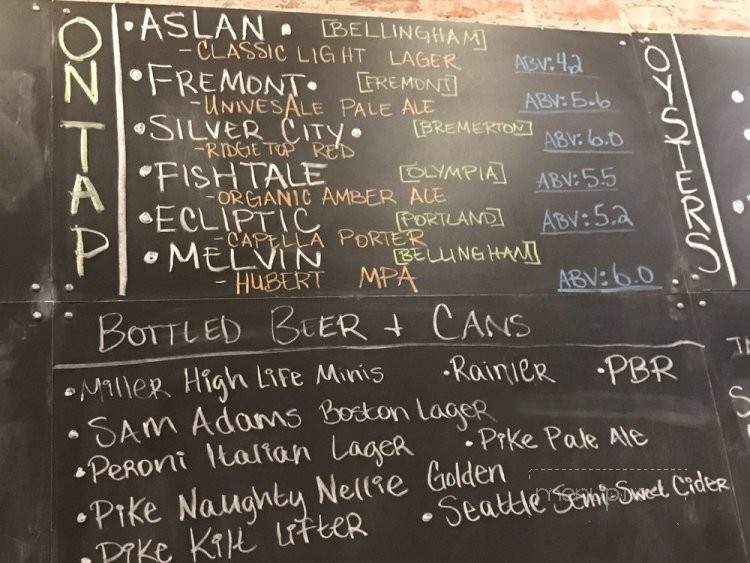 ON TAP
• ASLAN • [BELLINGHAM]
- CLASSIC LIGHT LAGER ABV: 4.2
• FREMONT • [FREMONT]
- UNIVESALE PALE ALE ABV: 5.6
• SILVER CITY • [BREMERTON]
- RIDGETOP RED ABV: 6.0
• FISHTALE [OLYMPIA] ABV: 5.5
- ORGANIC AMBER ALE
• ECLIPTIC [PORTLAND] ABV: 5.2
- CAPELLA PORTER
• MELVIN [BELLINGHAM]
- HUBERT MPA ABV: 6.0
OYSTERS
BOTTLED BEER + CANS
• MILLER HIGH LIFE MINIS • RAINIER • PBR
• SAM ADAMS BOSTON LAGER
• PERONI ITALIAN LAGER • PIKE PALE ALE
• PIKE NAUGHTY NELLIE GOLDEN
• PIKE KILT LIFTER • SEATTLE SEMI-SWEET CIDER